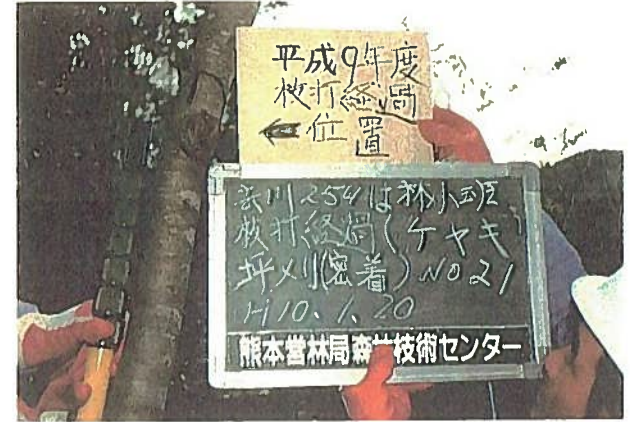 平成9年度
枝打経過
←位置
254は林小班
枝打経過(ケヤキ)
坪刈(密着)NO21
H10.1.20
熊本営林局森林技術センター